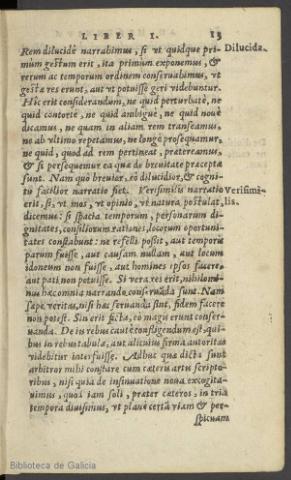 LIBER I. 13
Rem dilucidè narrabimus, si vt quidque pri- Dilucida.
mùm gestum erit, ita primùm exponemus, &
rerum ac temporum ordinem conseruabimus, vt
gestæ res erunt, aut vt potuisse geri videbuntur.
Hic erit considerandum, ne quid perturbatè, ne
quid contortè, ne quid ambiguè, ne quid nouè
dicamus, ne quam in aliam rem transeamus,
ne ab vltimo repetamus, ne longè prosequamur,
ne quid, quod ad rem pertineat, prætereamus,
& si persequemur ea quæ de breuitate præcepta
sunt. Nam quo breuior, eò dilucidior, & cogni-
tu facilior narratio fiet. Verisimilis narratio Verisimi-
erit, si, vt mos, vt opinio, vt natura postulat, lis.
dicemus: si spacia temporum, personarum di-
gnitates, consiliorum rationes, locorum opportuni-
tates constabunt: ne refelli possit, aut temporis
parum fuisse, aut causam nullam, aut locum
idoneum non fuisse, aut homines ipsos facere,
aut pati non potuisse. Si vera res erit, nihilomi-
nus hæc omnia narrando conseruãda sunt. Nam
sæpe veritas, nisi hæc seruanda sint, fidem facere
non potest. Sin erit ficta, eò magis erunt conser-
uanda. De iis rebus cautè confligendum est, qui-
bus in rebus tabulæ, aut alicuius firma autoritas
videbitur interfuisse. Adhuc quæ dicta sunt
arbitror mihi constare cum cæteris artis scripto-
ribus, nisi quia de insinuatione noua excogita-
uimus, quòd eam soli, præter cæteros, in tria
tempora diuisimus, vt planè certã viam & per-
spicuam
Biblioteca de Galicia